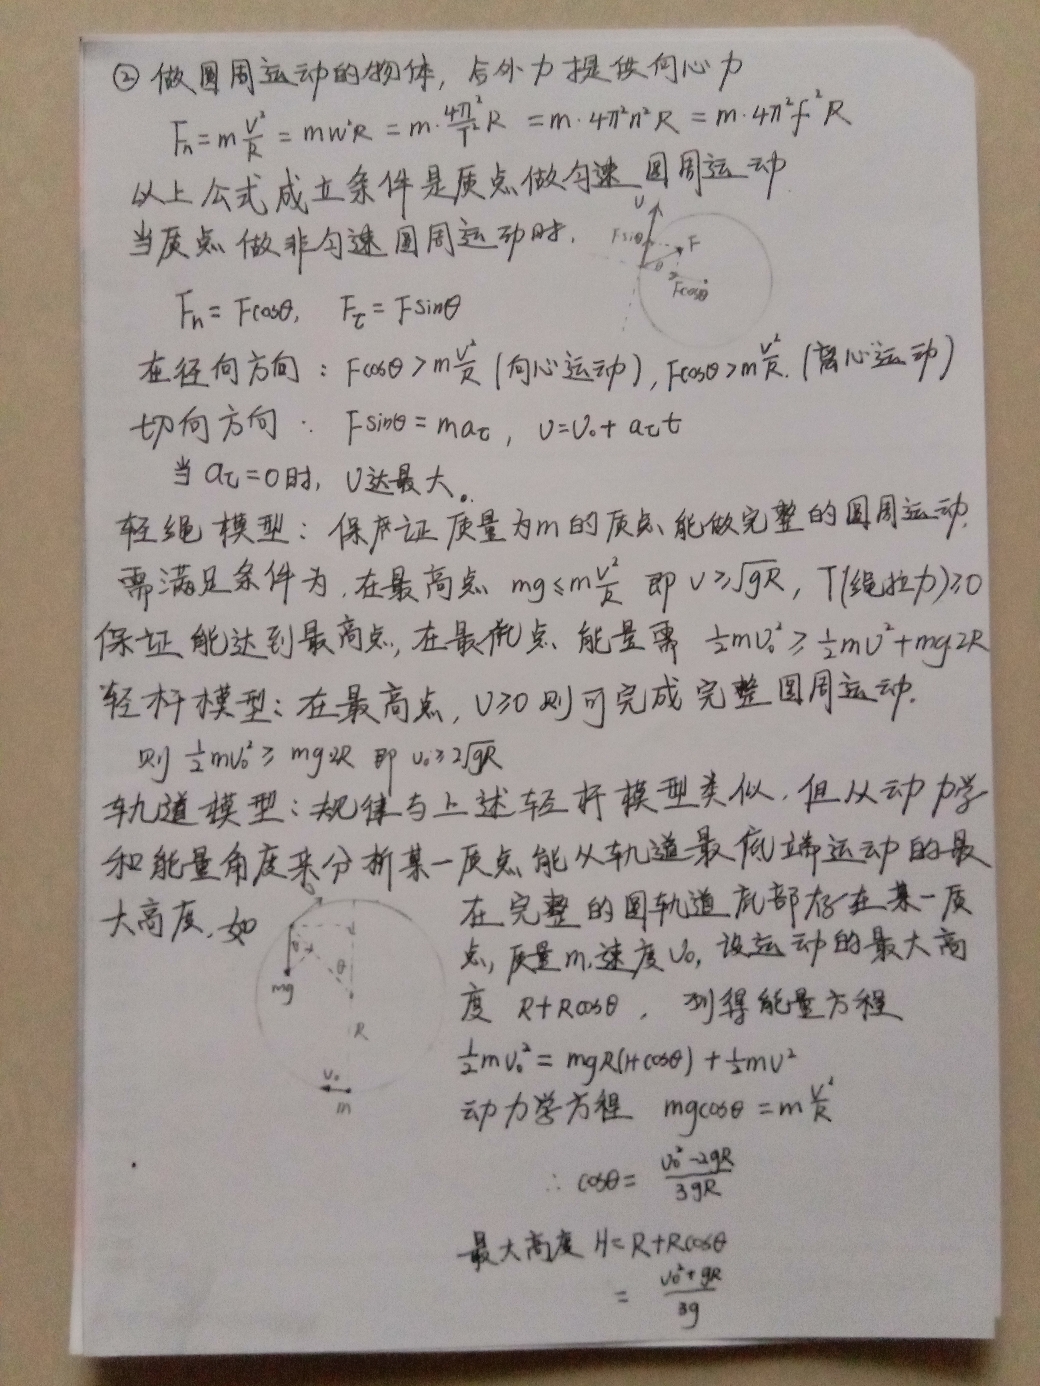 ② 做圆周运动的物体, 合外力提供向心力
Fn = m v²/R = mw²R = m·4π²/T² R = m·4π²n²R = m·4π²f²R
以上公式成立条件是质点做匀速圆周运动
当质点做非匀速圆周运动时,
υ
Fsinθ
F
θ
Fcosθ
Fn = Fcosθ, Fτ = Fsinθ
在径向方向: Fcosθ > m v²/R (向心运动), Fcosθ > m v²/R. (离心运动)
切向方向: Fsinθ = maτ, υ = υ₀ + aτt
当 aτ = 0时, υ达最大.
轻绳模型: 保证质量为m的质点能做完整的圆周运动,
需满足条件为, 在最高点 mg ≤ m v²/R 即 υ ≥ √gR, T(绳拉力) ≥ 0
保证能达到最高点, 在最低点 能量需 ½mυ₀² ≥ ½mυ² + mg2R
轻杆模型: 在最高点, υ ≥ 0 则可完成完整圆周运动.
则 ½mυ₀² ≥ mg2R 即 υ₀ ≥ 2√gR
轨道模型: 规律与上述轻杆模型类似, 但从动力学
和能量角度来分析某一质点能从轨道最低端运动的最
大高度, 如
θ
θ
mg
R
υ₀
m
在完整的圆轨道底部存在某一质
点, 质量m, 速度υ₀, 设运动的最大高
度 R+Rcosθ, 列得能量方程
½mυ₀² = mgR(1+cosθ) + ½mυ²
动力学方程 mgcosθ = m v²/R
∴ cosθ = (υ₀² - 2gR)/3gR
最大高度 H = R+Rcosθ
= (υ₀² + gR)/3g